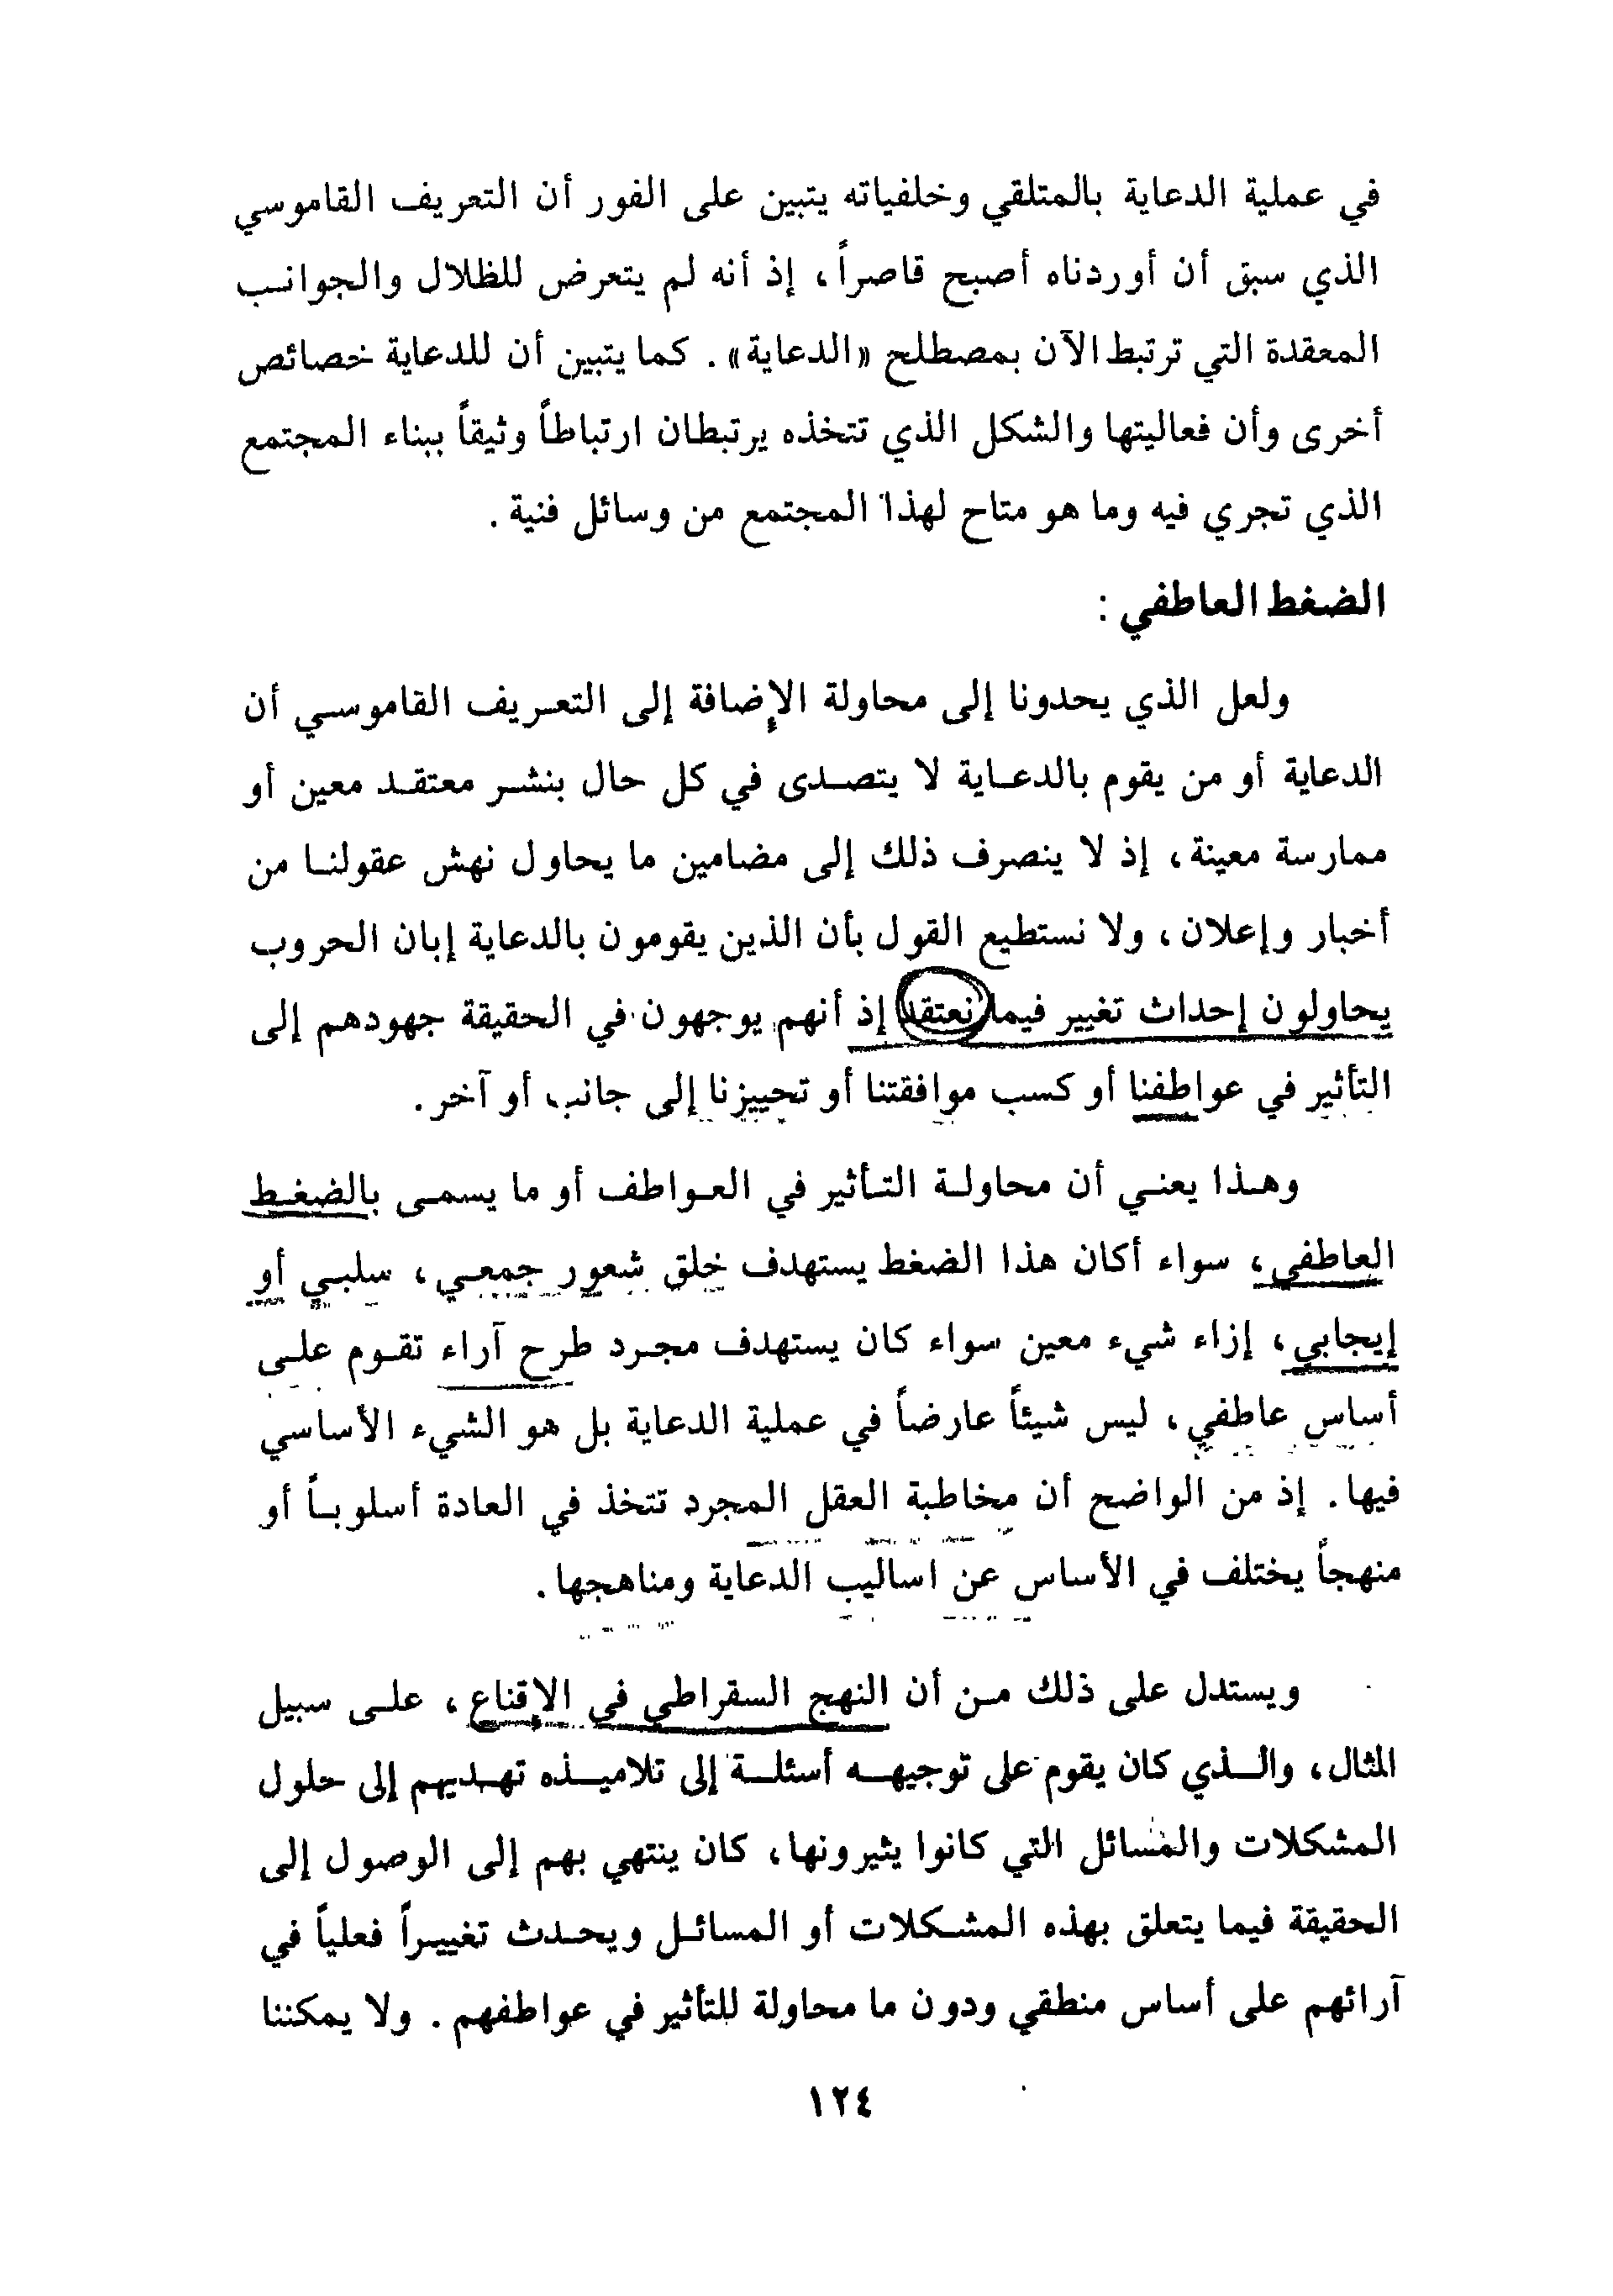 في عملية الدعاية بالمتلقي وخلفياته يتبين على الفور أن التعريف القاموسي
الذي سبق أن أوردناه أصبح قاصراً، إذ أنه لم يتعرض للظلال والجوانب
المعقدة التي ترتبط الآن بمصطلح «الدعاية». كما يتبين أن للدعاية خصائص
أخرى وأن فعاليتها والشكل الذي تتخذه يرتبطان ارتباطاً وثيقاً ببناء المجتمع
الذي تجري فيه وما هو متاح لهذا المجتمع من وسائل فنية.
الضغط العاطفي :
ولعل الذي يحدونا إلى محاولة الإضافة إلى التعريف القاموسي أن
الدعاية أو من يقوم بالدعاية لا يتصدى في كل حال بنشر معتقد معين أو
ممارسة معينة، إذ لا ينصرف ذلك إلى مضامين ما يحاول نهش عقولنا من
أخبار وإعلان، ولا نستطيع القول بأن الذين يقومون بالدعاية إبان الحروب
يحاولون إحداث تغيير فيما نعتقد إذ أنهم يوجهون في الحقيقة جهودهم إلى
التأثير في عواطفنا أو كسب موافقتنا أو تحييزنا إلى جانب أو آخر.
وهذا يعني أن محاولة التأثير في العواطف أو ما يسمى بالضغط
العاطفي، سواء أكان هذا الضغط يستهدف خلق شعور جمعي، سلبي أو
إيجابي، إزاء شيء معين سواء كان يستهدف مجرد طرح آراء تقوم على
أساس عاطفي، ليس شيئاً عارضاً في عملية الدعاية بل هو الشيء الأساسي
فيها. إذ من الواضح أن مخاطبة العقل المجرد تتخذ في العادة أسلوباً أو
منهجاً يختلف في الأساس عن اساليب الدعاية ومناهجها.
ويستدل على ذلك من أن النهج السقراطي في الإقناع، على سبيل
المثال، والذي كان يقوم على توجيهه أسئلة إلى تلاميذه تهديهم إلى حلول
المشكلات والمسائل التي كانوا يثيرونها، كان ينتهي بهم إلى الوصول إلى
الحقيقة فيما يتعلق بهذه المشكلات أو المسائل ويحدث تغييراً فعلياً في
آرائهم على أساس منطقي ودون ما محاولة للتأثير في عواطفهم. ولا يمكننا
١٢٤